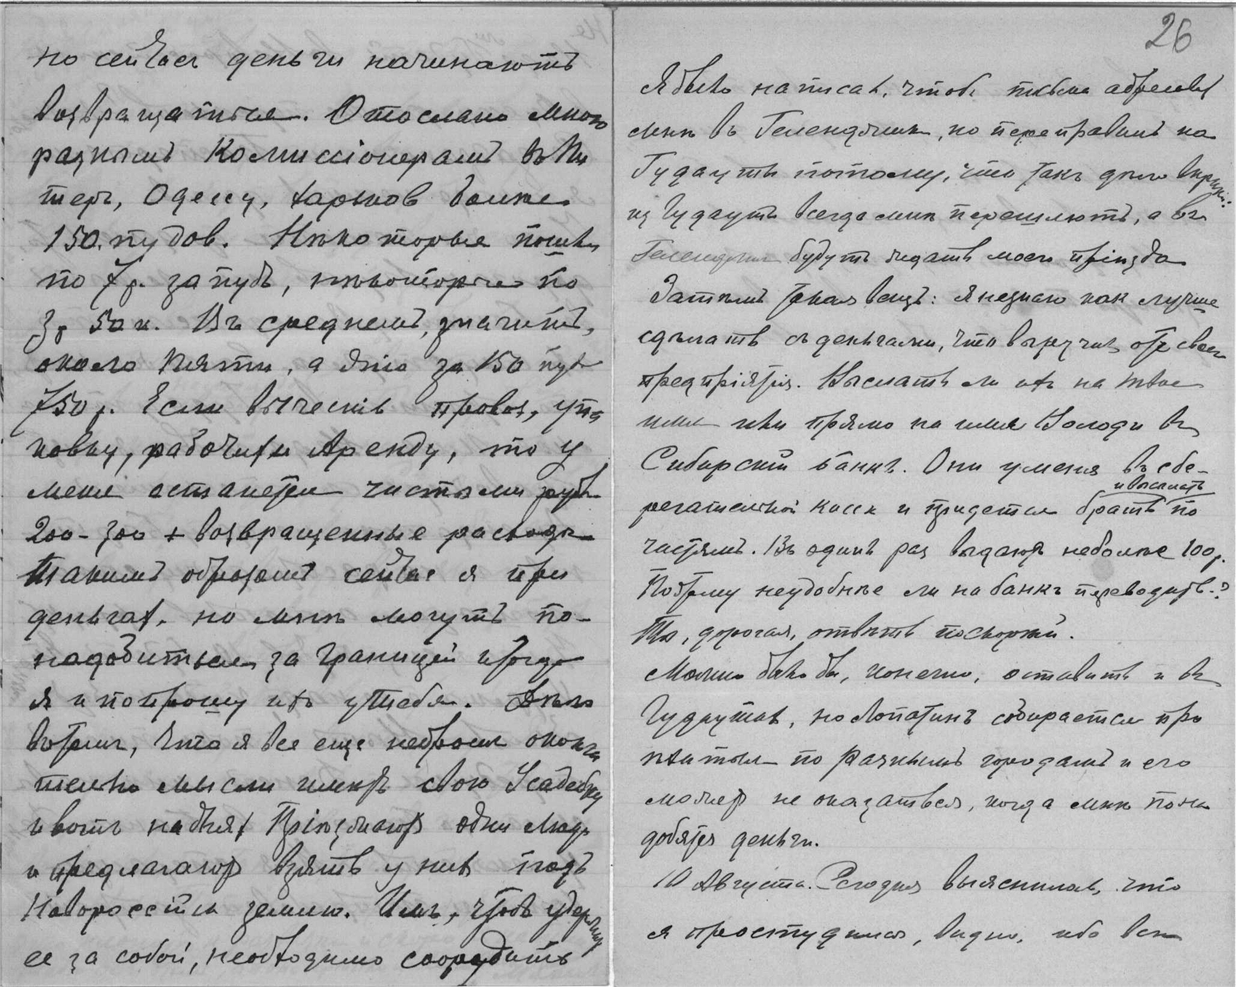 но сейчас деньги начинаютъ
возвращаться. Отослано много
разнымъ комиссіонерамъ въ Пи
теръ, Одессу, Харьков больше
150 пудов. Нѣкоторые пошли
по 7 р. за пудъ, нѣкоторые по
3 р 50 к. Въ среднемъ, значитъ,
около пяти, а это за 150 пуд
750 р. Если вычесть провоз, упа
ковку, рабочих и аренду, то у
меня останется чистыми руб.
200-300 + возвращенные расходы
Такимъ образомъ сейчас я при
деньгах, но мнѣ могутъ по-
надобиться за границей и тогда
я и попрошу их у тебя. Дѣло
въ том, что я все еще не бросил оконча
тельно мысли имѣть свою усадебку
и вотъ на днях пріѣзжают одни люди
и предлагают взять у них подъ
Новороссійск землю. Имъ, чтобъ удержать
ее за собой, необходимо соорудить
26
Я было написал, чтобъ письма адресовал
мнѣ въ Геленджик, но переправилъ на
Гудаутъ потому, что так дѣло вѣрнѣе:
из Гудаутъ всегда мнѣ перешлютъ, а въ
Геленджик будутъ ждать моего пріѣзда
Затѣмъ такая вещь: я не знаю как лучше
сдѣлать съ деньгами, что выручил от своего
предпріятія. Выслать ли их на твое
имя или прямо на имя Володи въ
Сибирскій банкъ. Они у меня въ сбе-
регательной кассѣ и придется брать и высылать по
частям. Въ один раз выдают не больше 100 р.
Поэтому неудобнѣе ли на банкъ переводить?
Ты, дорогая, отвѣть поскорѣй.
Можно было бы, конечно, оставить и въ
Гудаутах, но Лопатинъ собирается про
ѣхаться по разнымъ городамъ и его
может не оказаться, когда мнѣ пона
добятся деньги.
10 Августа. Сегодня выяснилось, что
я простудился, видно, ибо весь